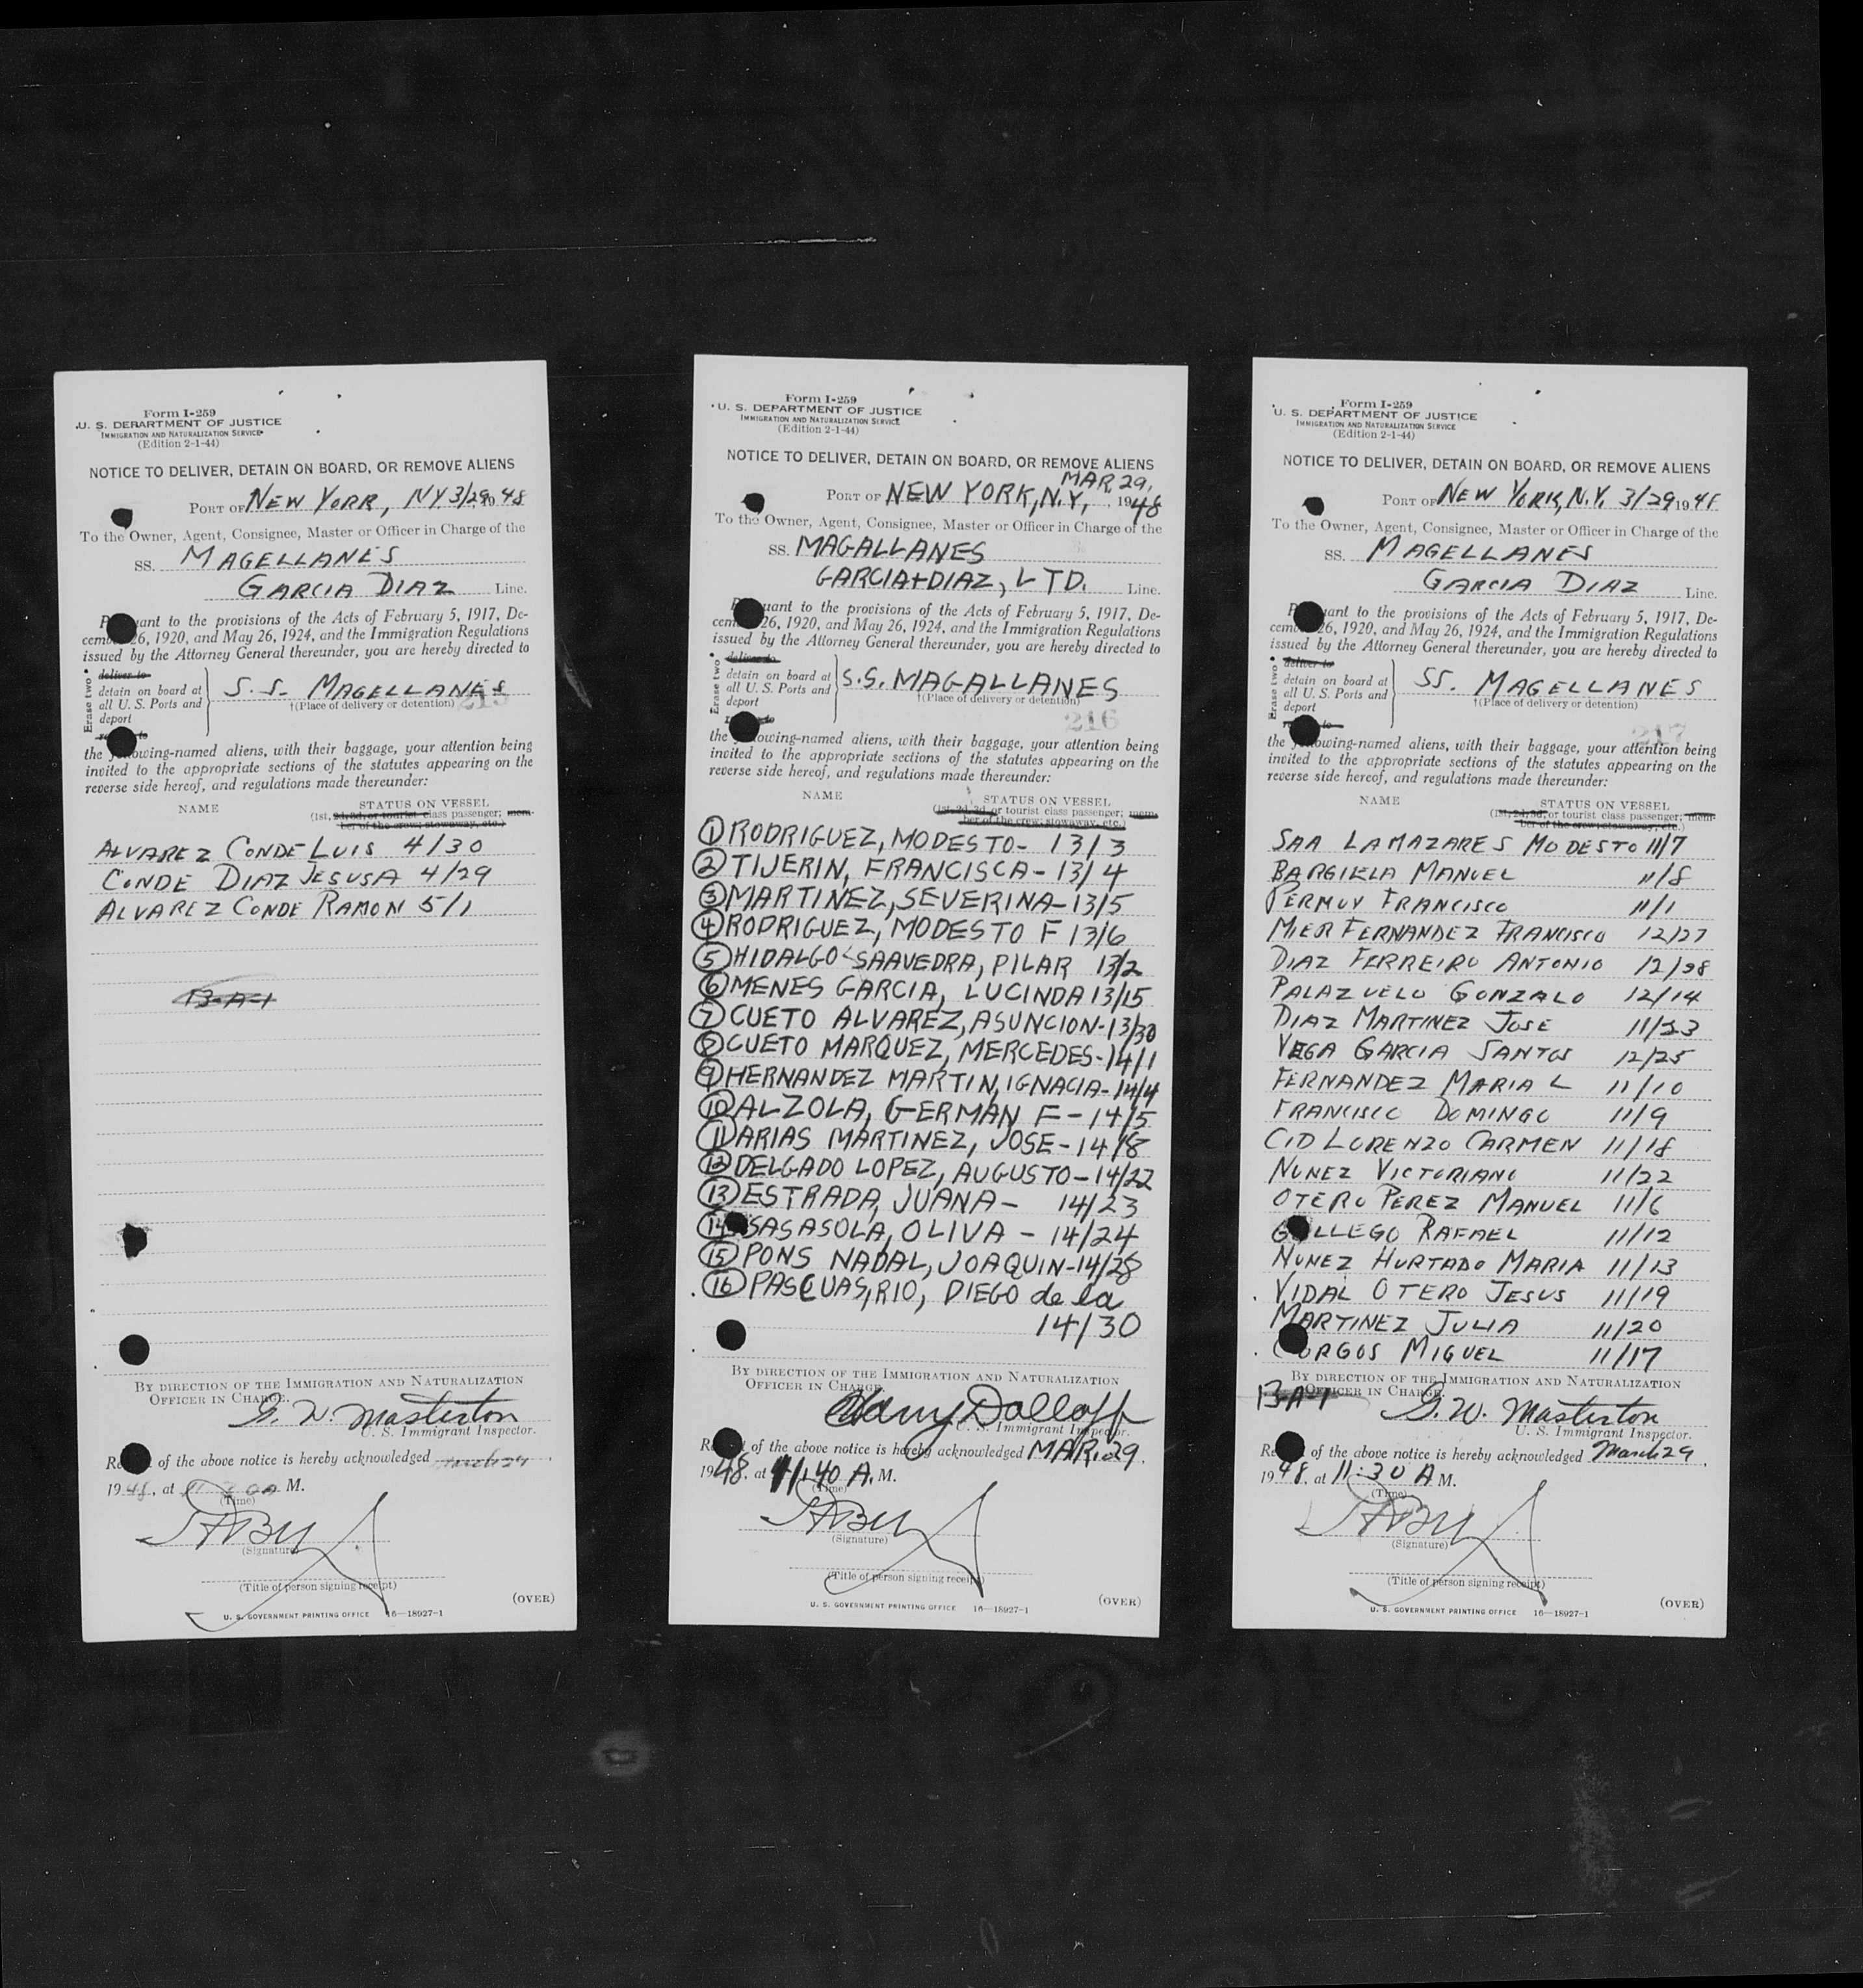 Form I-259
U. S. DEPARTMENT OF JUSTICE
IMMIGRATION AND NATURALIZATION SERVICE
(Edition 2-1-44)
NOTICE TO DELIVER, DETAIN ON BOARD, OR REMOVE ALIENS
PORT OF NEW YORK, NY 3/29 1948
To the Owner, Agent, Consignee, Master or Officer in Charge of the
SS. MAGELLANES
GARCIA DIAZ Line.
Pursuant to the provisions of the Acts of February 5, 1917, De-
cember 26, 1920, and May 26, 1924, and the Immigration Regulations
issued by the Attorney General thereunder, you are hereby directed to
Erase two *
deliver to
detain on board at
all U. S. Ports and
deport
S.S. MAGELLANES
†(Place of delivery or detention) 215
the following-named aliens, with their baggage, your attention being
invited to the appropriate sections of the statutes appearing on the
reverse side hereof, and regulations made thereunder:
NAME STATUS ON VESSEL
(1st, 2d, 3d, or tourist class passenger; mem-
ber of the crew; stowaway, etc.)
ALVAREZ CONDE LUIS 4/30
CONDE DIAZ JESUSA 4/29
ALVAREZ CONDE RAMON 5/1
13-A-1
BY DIRECTION OF THE IMMIGRATION AND NATURALIZATION
OFFICER IN CHARGE.
G. W. Masterton
U. S. Immigrant Inspector.
Receipt of the above notice is hereby acknowledged March 29,
1948, at M.
(Time)
(Signature)
(Title of person signing receipt)
(OVER)
U. S. GOVERNMENT PRINTING OFFICE 16—18927-1
Form I-259
U. S. DEPARTMENT OF JUSTICE
IMMIGRATION AND NATURALIZATION SERVICE
(Edition 2-1-44)
NOTICE TO DELIVER, DETAIN ON BOARD, OR REMOVE ALIENS
PORT OF NEW YORK, N.Y., MAR. 29, 1948
To the Owner, Agent, Consignee, Master or Officer in Charge of the
SS. MAGALLANES
GARCIA + DIAZ, LTD. Line.
Pursuant to the provisions of the Acts of February 5, 1917, De-
cember 26, 1920, and May 26, 1924, and the Immigration Regulations
issued by the Attorney General thereunder, you are hereby directed to
Erase two *
deliver to
detain on board at
all U. S. Ports and
deport
remove to
S.S. MAGALLANES
†(Place of delivery or detention)
216
the following-named aliens, with their baggage, your attention being
invited to the appropriate sections of the statutes appearing on the
reverse side hereof, and regulations made thereunder:
NAME STATUS ON VESSEL
(1st, 2d, 3d, or tourist class passenger; mem-
ber of the crew; stowaway, etc.)
① RODRIGUEZ, MODESTO - 13/3
② TIJERIN, FRANCISCA - 13/4
③ MARTINEZ, SEVERINA - 13/5
④ RODRIGUEZ, MODESTO F 13/6
⑤ HIDALGO-SAAVEDRA, PILAR 13/2
⑥ MENES GARCIA, LUCINDA 13/15
⑦ CUETO ALVAREZ, ASUNCION - 13/30
⑧ CUETO MARQUEZ, MERCEDES - 14/1
⑨ HERNANDEZ MARTIN, IGNACIA - 14/4
⑩ ALZOLA, GERMAN F - 14/5
⑪ ARIAS MARTINEZ, JOSE - 14/8
⑫ DELGADO LOPEZ, AUGUSTO - 14/22
⑬ ESTRADA, JUANA - 14/23
⑭ SASASOLA, OLIVA - 14/24
⑮ PONS NADAL, JOAQUIN - 14/28
⑯ PASCUAS, RIO, DIEGO de la
14/30
BY DIRECTION OF THE IMMIGRATION AND NATURALIZATION
OFFICER IN CHARGE.
Harry Dolloff
U. S. Immigrant Inspector.
Receipt of the above notice is hereby acknowledged MAR. 29,
1948, at 11:40 A. M.
(Time)
(Signature)
(Title of person signing receipt)
(OVER)
U. S. GOVERNMENT PRINTING OFFICE 16—18927-1
Form I-259
U. S. DEPARTMENT OF JUSTICE
IMMIGRATION AND NATURALIZATION SERVICE
(Edition 2-1-44)
NOTICE TO DELIVER, DETAIN ON BOARD, OR REMOVE ALIENS
PORT OF NEW YORK, N.Y. 3/29 1948
To the Owner, Agent, Consignee, Master or Officer in Charge of the
SS. MAGELLANES
GARCIA DIAZ Line.
Pursuant to the provisions of the Acts of February 5, 1917, De-
cember 26, 1920, and May 26, 1924, and the Immigration Regulations
issued by the Attorney General thereunder, you are hereby directed to
Erase two *
deliver to
detain on board at
all U. S. Ports and
deport
SS. MAGELLANES
†(Place of delivery or detention)
217
the following-named aliens, with their baggage, your attention being
invited to the appropriate sections of the statutes appearing on the
reverse side hereof, and regulations made thereunder:
NAME STATUS ON VESSEL
(1st, 2d, 3d, or tourist class passenger; mem-
ber of the crew; stowaway, etc.)
SAA LAMAZARES MODESTO 11/7
BARGIELA MANUEL 11/8
PERMUY FRANCISCO 11/1
MIER FERNANDEZ FRANCISCO 12/27
DIAZ FERREIRO ANTONIO 12/28
PALAZUELO GONZALO 12/14
DIAZ MARTINEZ JOSE 11/23
VEGA GARCIA SANTOS 12/25
FERNANDEZ MARIA L 11/10
FRANCISCO DOMINGO 11/9
CID LORENZO CARMEN 11/18
NUNEZ VICTORIANO 11/22
OTERO PEREZ MANUEL 11/6
GALLEGO RAFAEL 11/12
NUNEZ HURTADO MARIA 11/13
VIDAL OTERO JESUS 11/19
MARTINEZ JULIA 11/20
MIGUEL 11/17
BY DIRECTION OF THE IMMIGRATION AND NATURALIZATION
OFFICER IN CHARGE.
13-A-1
G. W. Masterton
U. S. Immigrant Inspector.
Receipt of the above notice is hereby acknowledged March 29,
1948, at 11:30 A M.
(Time)
(Signature)
(Title of person signing receipt)
(OVER)
U. S. GOVERNMENT PRINTING OFFICE 16—18927-1